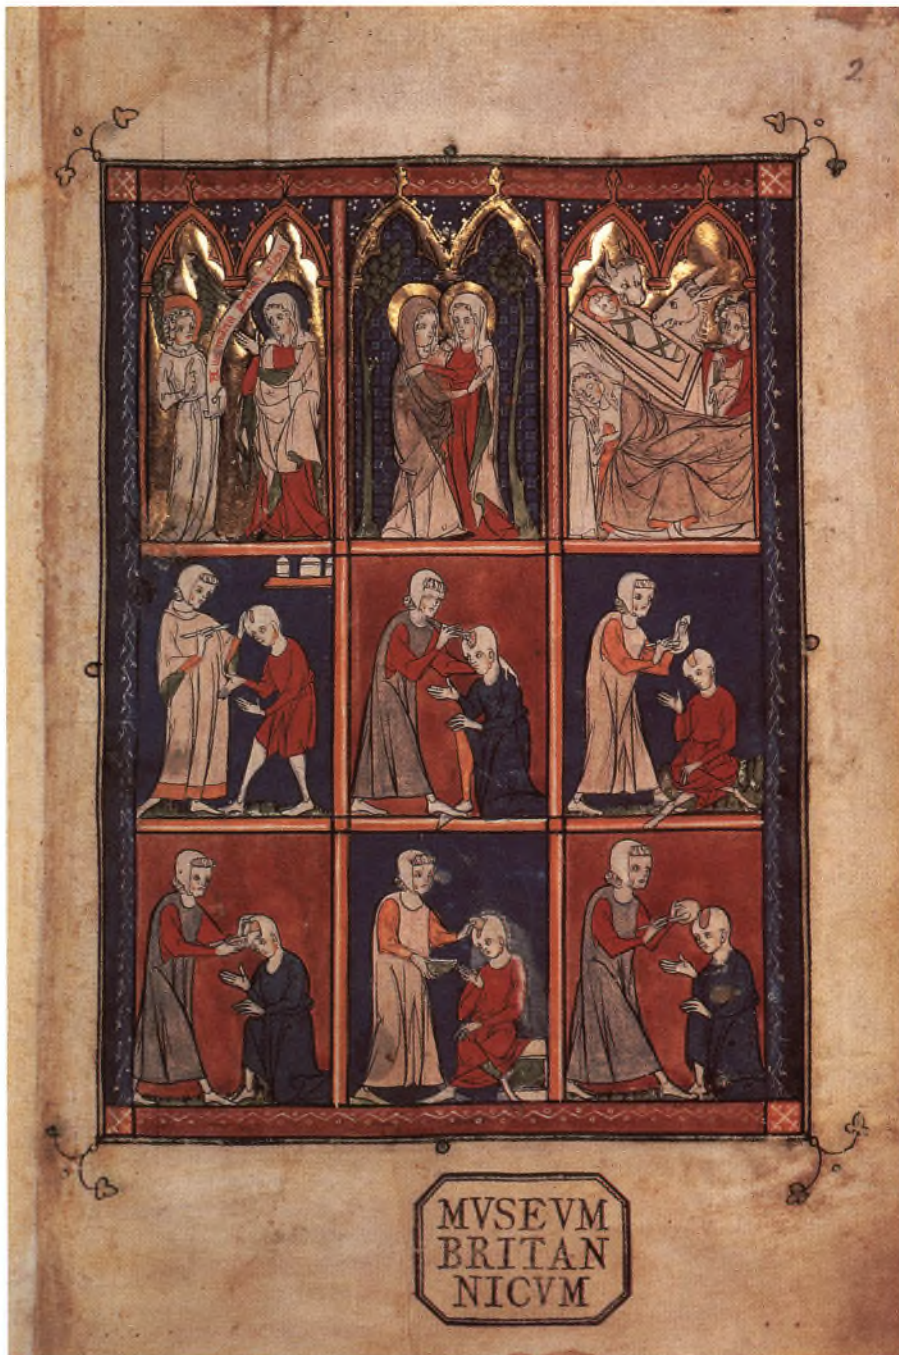 2
MVSEVM
BRITAN
NICVM